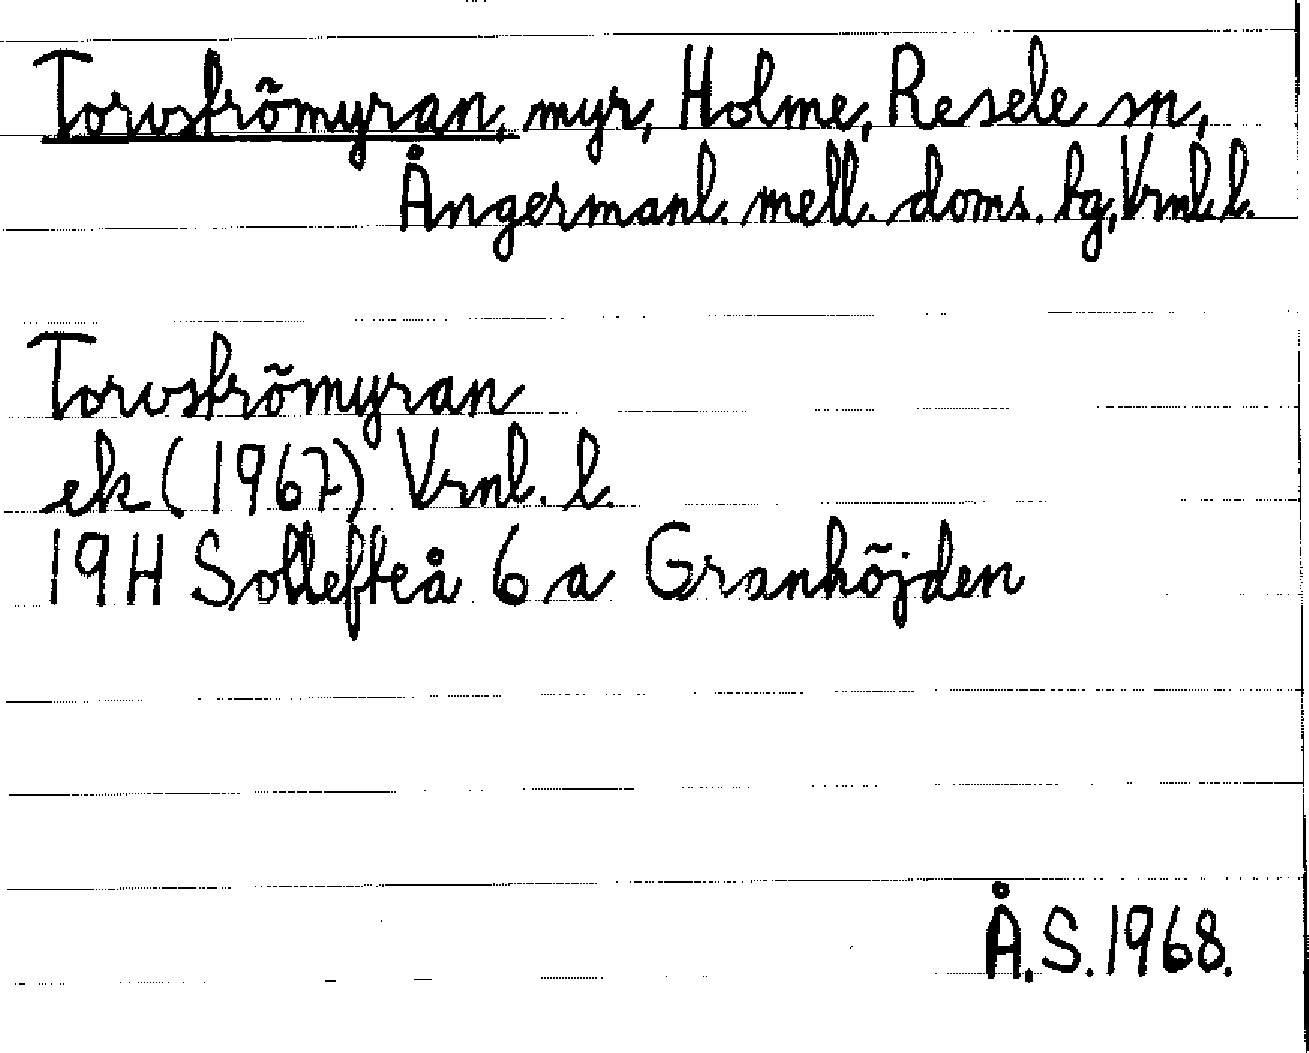 Torvströmyran, myr, Holme, Resele sn,
Ångermanl. mell. doms. tg, Vrnl. l.
Torvströmyran
ek (1967) Vrnl. l.
19H Sollefteå 6 a Granhöjden
Å.S. 1968.